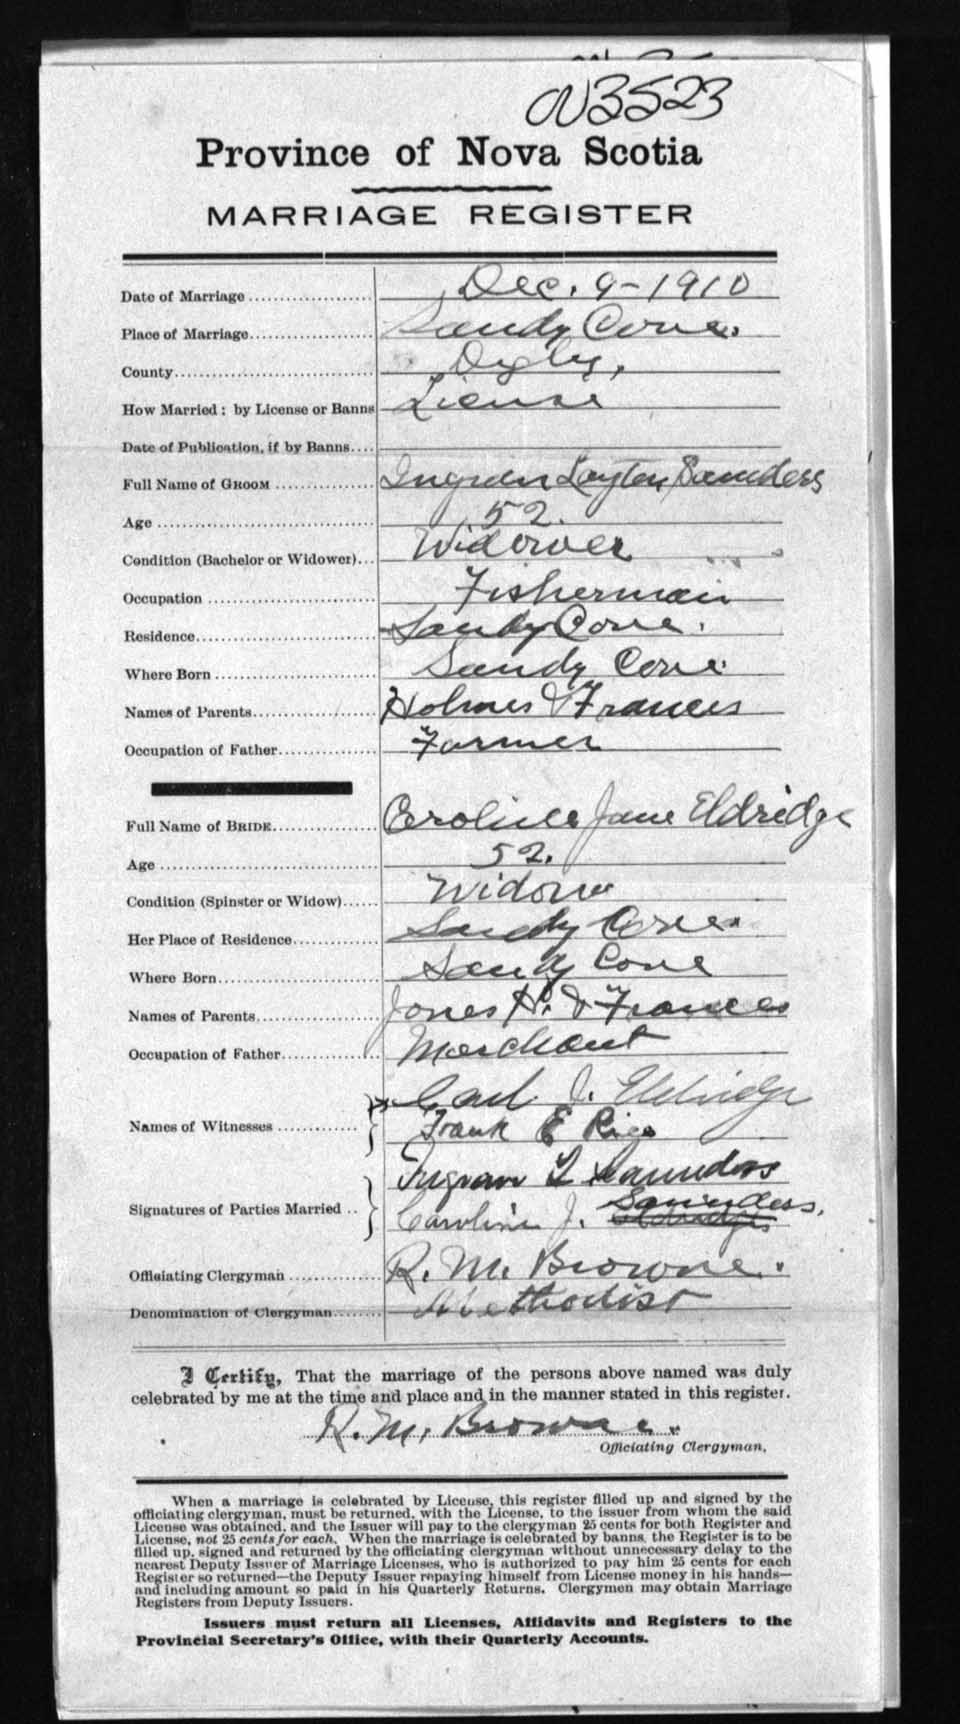 N3523
Province of Nova Scotia
MARRIAGE REGISTER
Date of Marriage .................. Dec. 9-1910
Place of Marriage.................. Sandy Cove.
County.................. Digby,
How Married: by License or Banns License
Date of Publication, if by Banns....
Full Name of GROOM .............. Ingram Layton Saunders
Age .................. 52.
Condition (Bachelor or Widower)... Widower
Occupation .................. Fisherman
Residence.................. Sandy Cove.
Where Born .................. Sandy Cove.
Names of Parents.................. Holmes & Frances
Occupation of Father.............. Farmer
Full Name of BRIDE................ Caroline Jane Eldridge
Age .................. 52.
Condition (Spinster or Widow)...... Widow
Her Place of Residence............. Sandy Cove.
Where Born.................. Sandy Cove
Names of Parents.................. Jones H. & Frances
Occupation of Father.............. Merchant
Carl J. Eldridge
Names of Witnesses ............
Frank E Rice
Ingram L Saunders
Signatures of Parties Married ..
Caroline J. Saunders. Eldridge
Officiating Clergyman ............ R. M. Browne.
Denomination of Clergyman........ Methodist
I Certify, That the marriage of the persons above named was duly
celebrated by me at the time and place and in the manner stated in this register.
R. M. Browne.
Officiating Clergyman.
When a marriage is celebrated by License, this register filled up and signed by the
officiating clergyman, must be returned, with the License, to the issuer from whom the said
License was obtained, and the Issuer will pay to the clergyman 25 cents for both Register and
License, not 25 cents for each. When the marriage is celebrated by banns, the Register is to be
filled up, signed and returned by the officiating clergyman without unnecessary delay to the
nearest Deputy Issuer of Marriage Licenses, who is authorized to pay him 25 cents for each
Register so returned—the Deputy Issuer repaying himself from License money in his hands—
and including amount so paid in his Quarterly Returns. Clergymen may obtain Marriage
Registers from Deputy Issuers.
Issuers must return all Licenses, Affidavits and Registers to the
Provincial Secretary's Office, with their Quarterly Accounts.